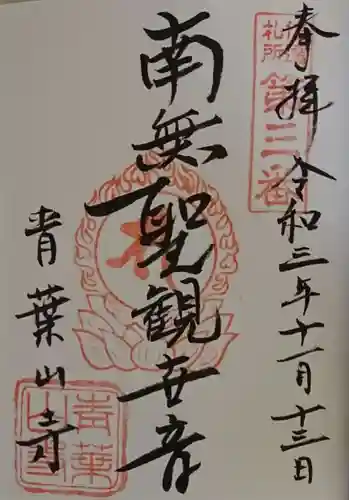 奉拝 令和三年十一月十三日
札所
第三番
南無聖観世音
青葉山寺
青葉
山寺